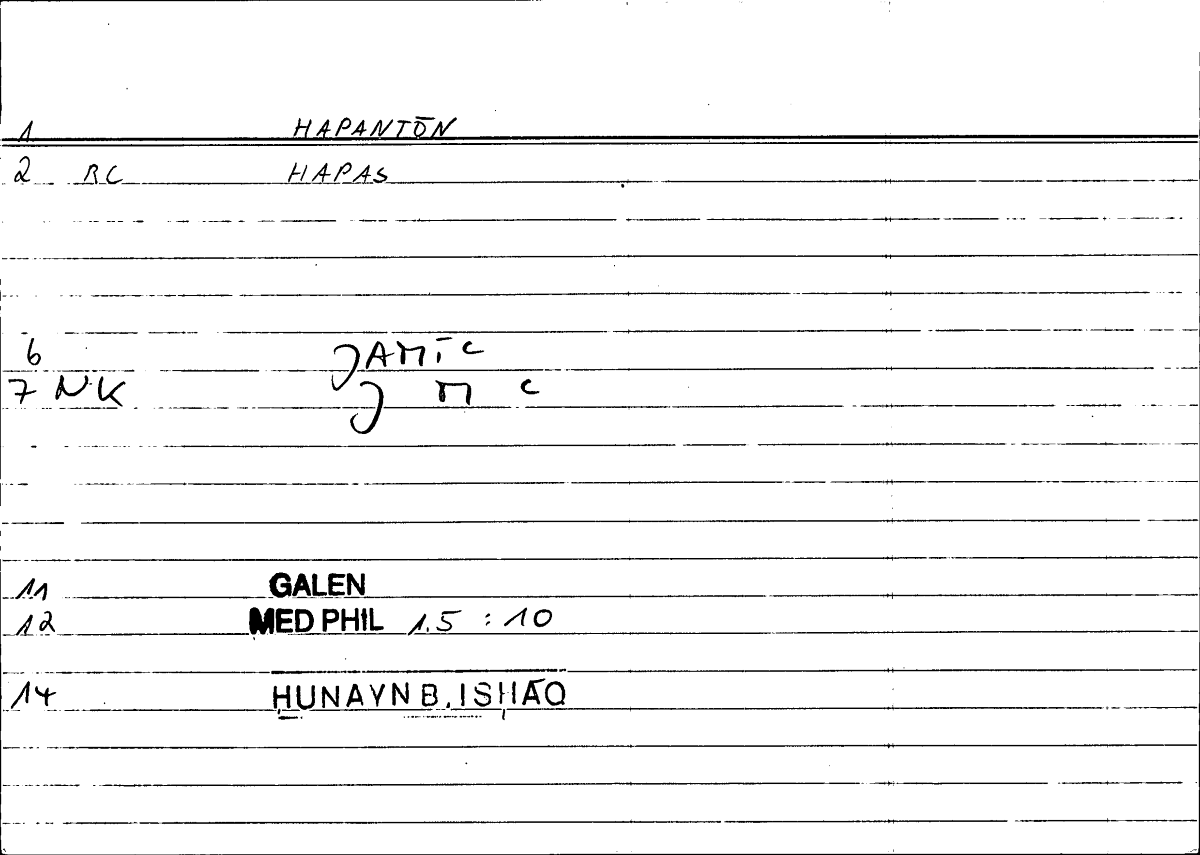 1 HAPANTŌN
2 RC HAPAS
6 JAMĪC
7 NK J M C
11 GALEN
12 MED PHIL 1.5 : 10
14 ḤUNAYN B. ISḤĀQ